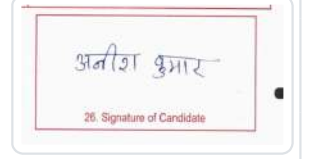 अनीश कुमार
26. Signature of Candidate